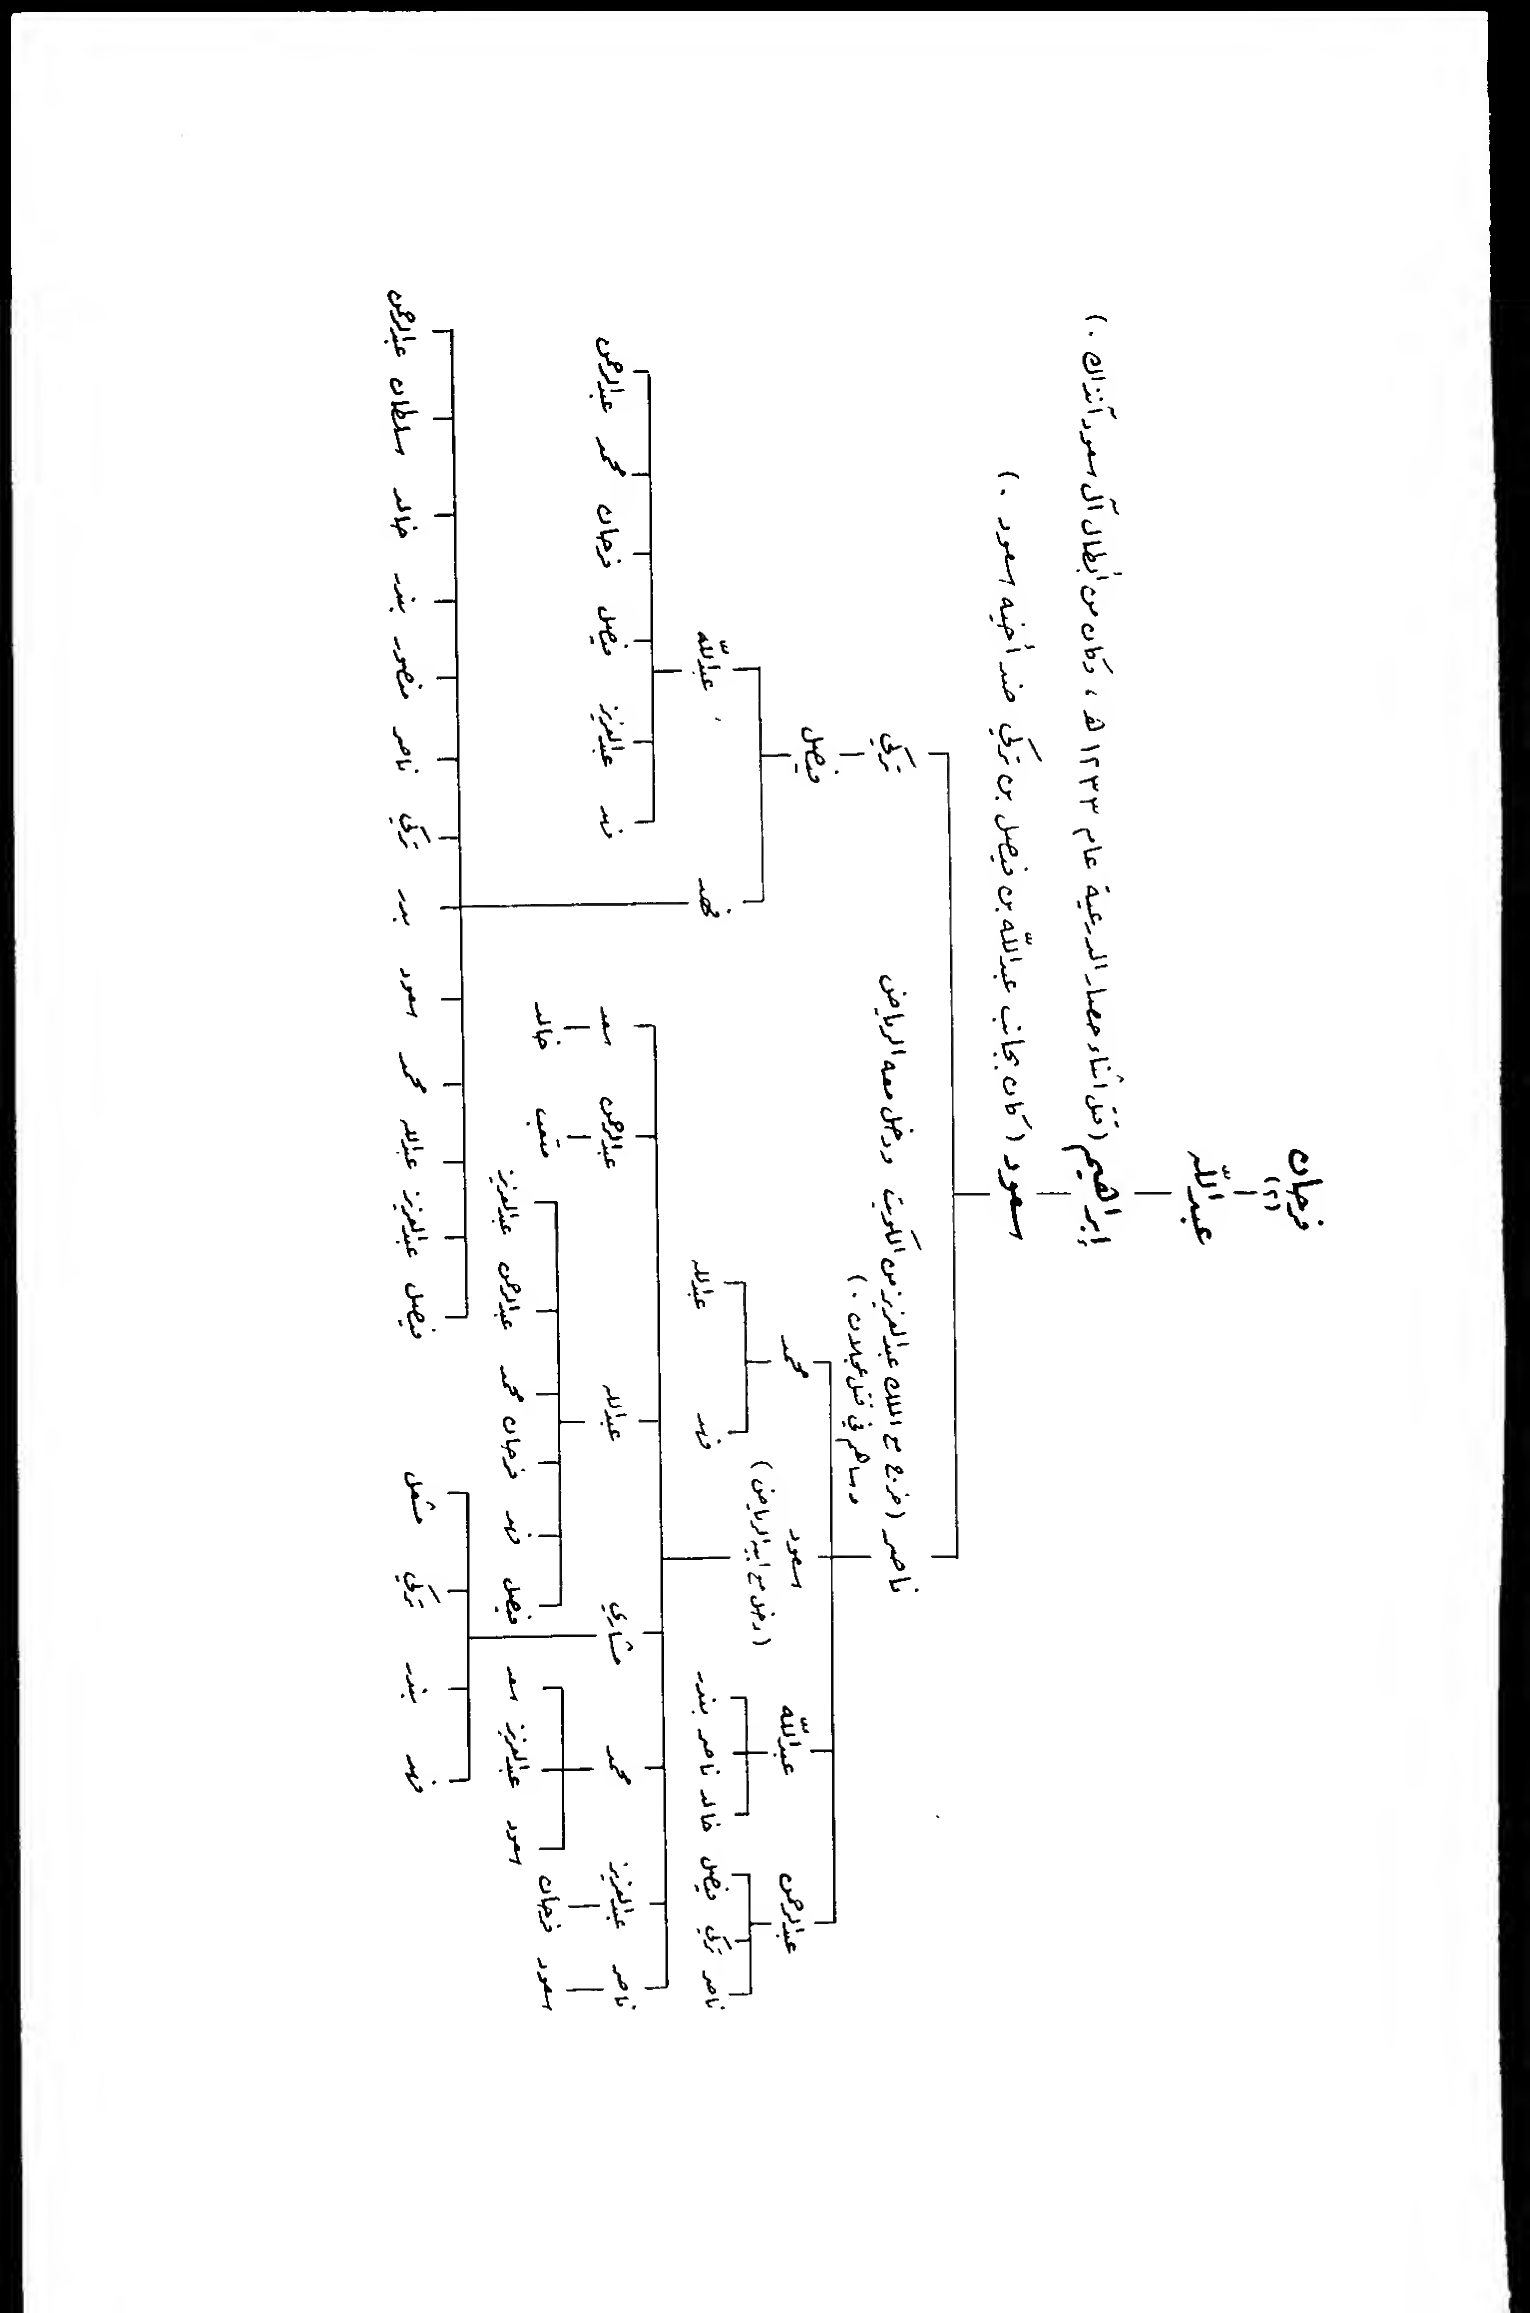 فرحان
(٢)
عبدالله
إبراهيم (قتل أثناء حصار الدرعية عام ١٢٣٣ هـ ، وكان من أبطال آل سعود آنذاك .)
سعود (كان بجانب عبدالله بن فيصل بن تركي ضد أخيه سعود .)
ناصر (خرج مع الملك عبدالعزيز من الكويت ودخل معه الرياض
وساهم في قتل عجلان .)
تركي
فيصل
عبدالرحمن عبدالله سعود محمد
(دخل مع أبيه الرياض)
فهد عبدالله
ناصر تركي فيصل خالد ناصر بندر فهد عبدالله
ناصر عبدالعزيز محمد مشاري عبدالله عبدالرحمن سعد
فهد عبدالعزيز فيصل فرحان محمد عبدالرحمن
سعود فرحان متعب خالد
سعود عبدالعزيز سعد فيصل فهد فرحان محمد عبدالرحمن عبدالعزيز
فهد بندر تركي مشعل
فيصل عبدالعزيز عبدالله محمد سعود بدر تركي ناصر منصور بندر خالد سلطان عبدالرحمن